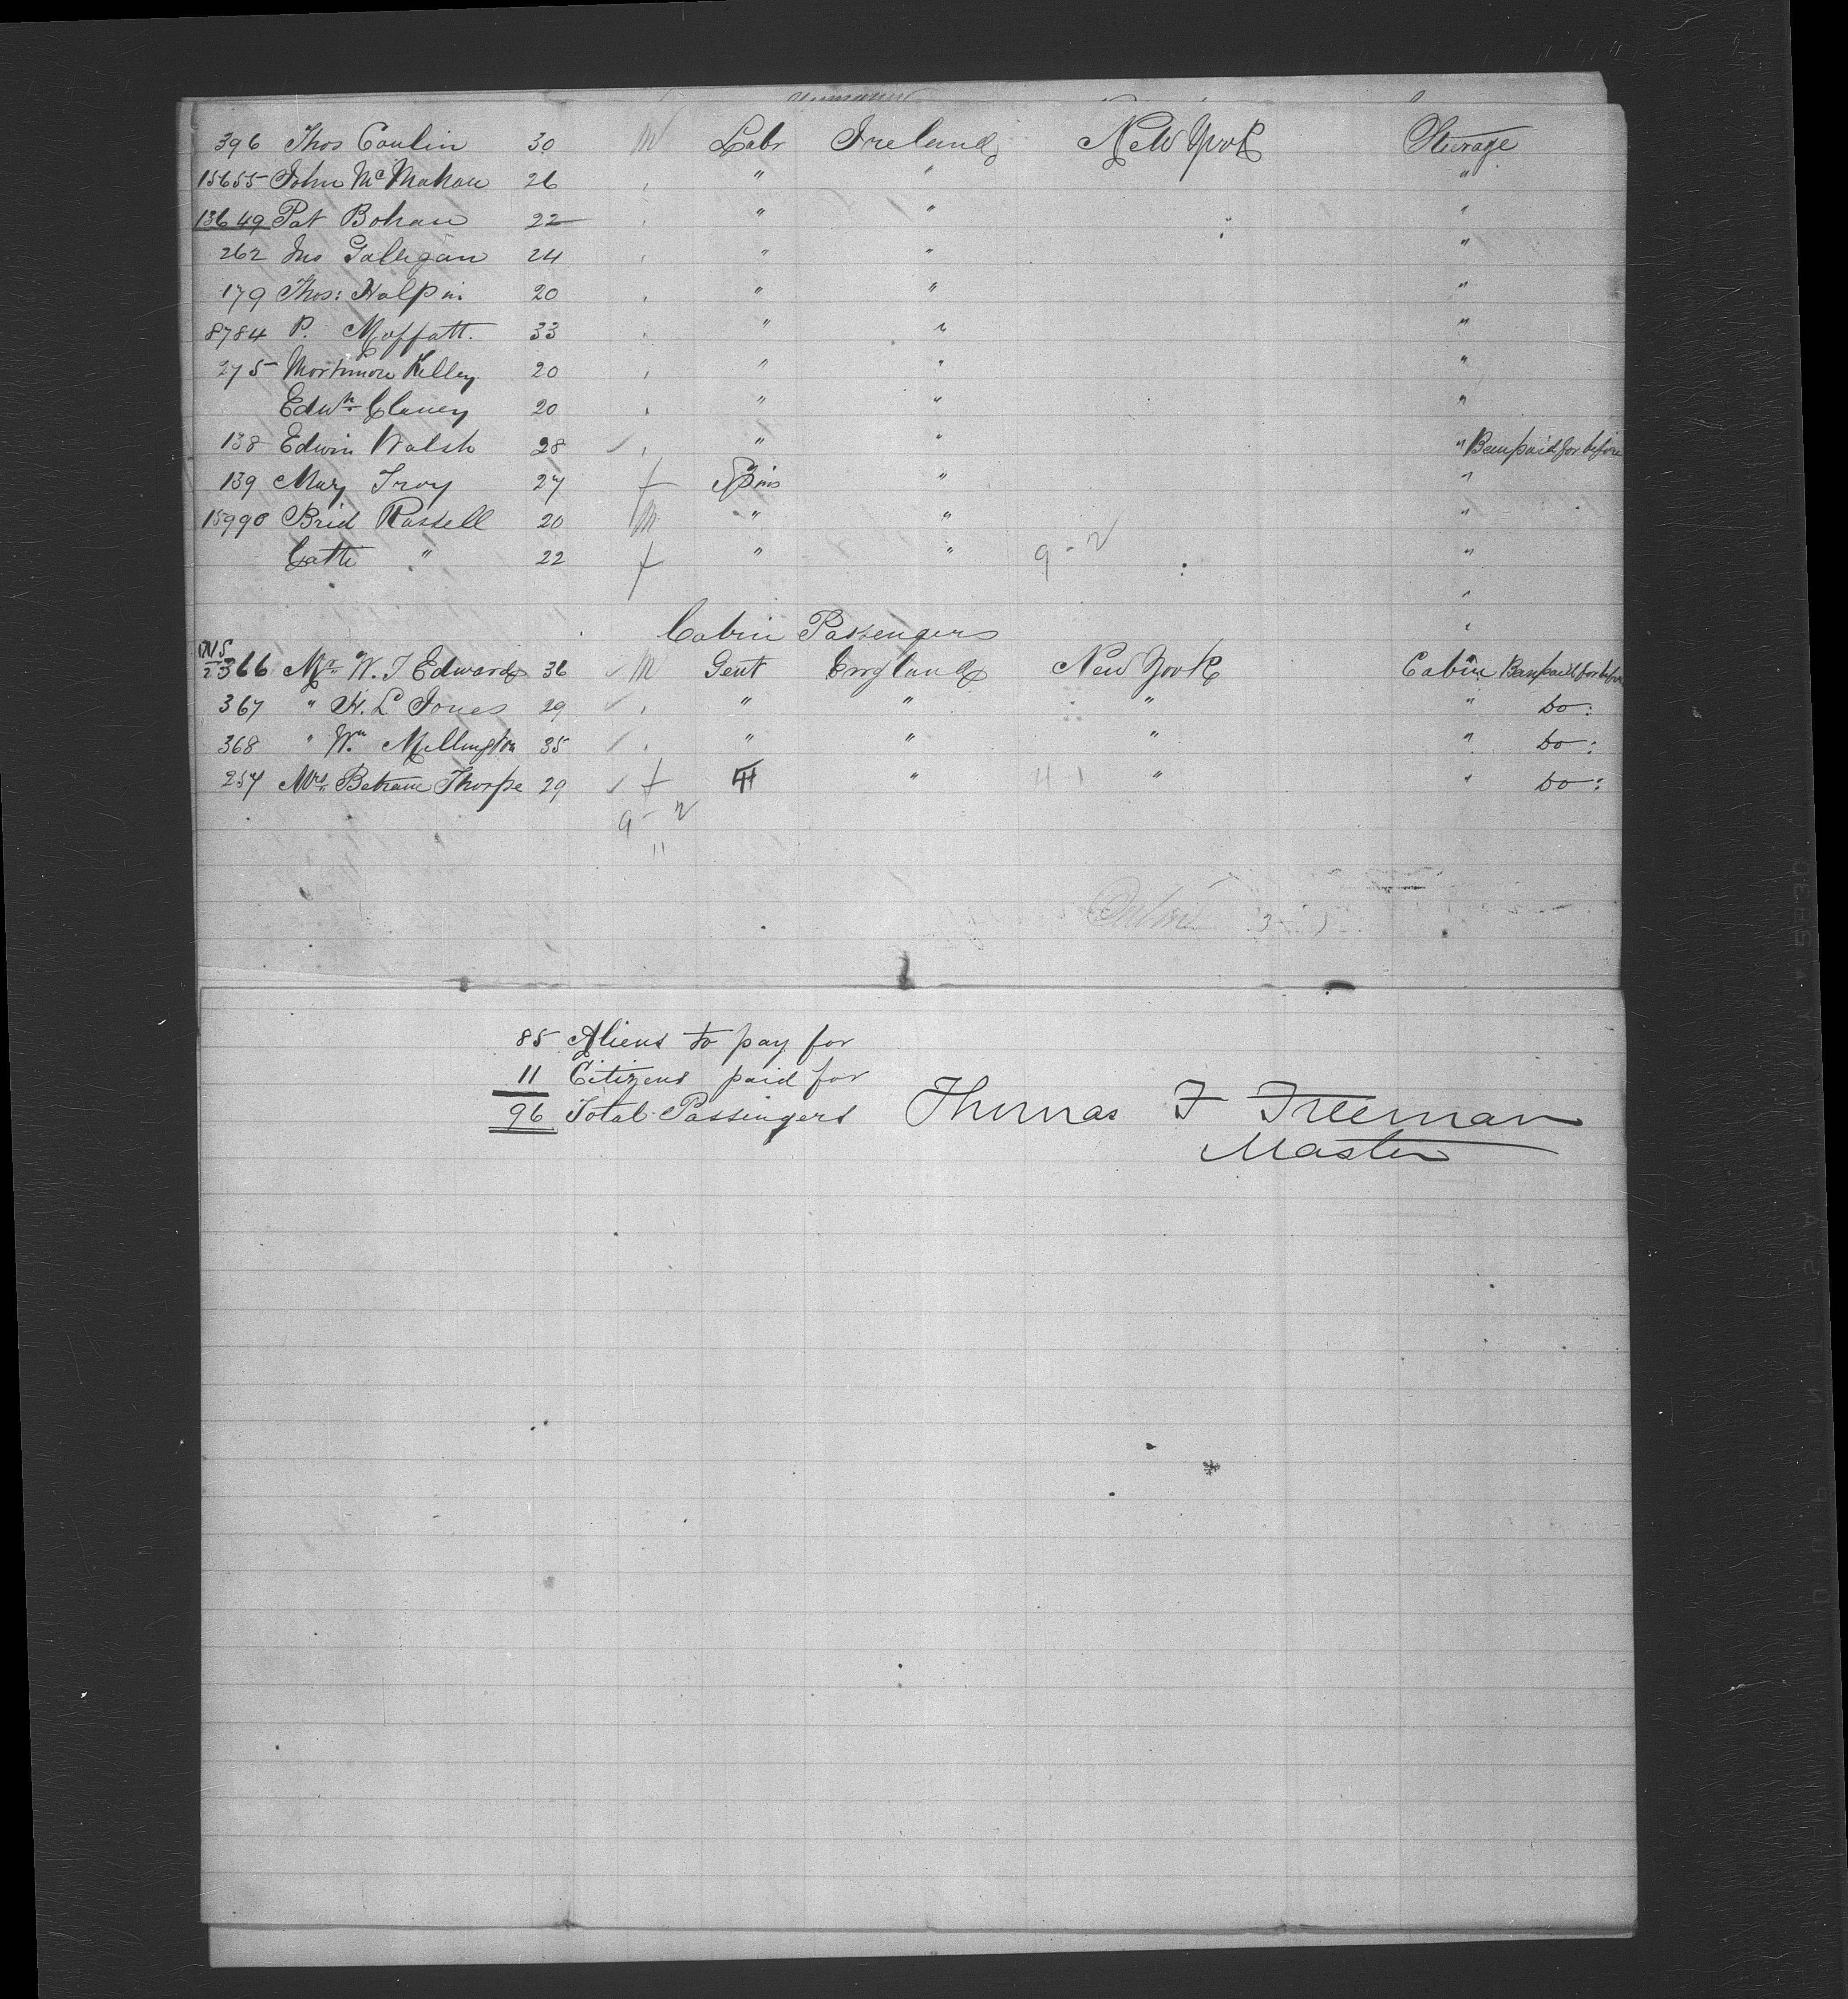 396 Thos Conlin 30 M Labr Ireland New York Steerage
15655 John McMahan 26 " " "
13649 Pat Bohan 22 " " "
262 Jno Galligan 24 " " "
179 Thos: Halpin 20 " " "
8784 P. Moffatt. 33 " " "
275 Mortimore Kelley 20 " " "
Edwd Clancy 20 " " "
138 Edwin Walsh 28 ✓ " " " Been paid for before
139 Mary Troy 27 f Spins " "
15990 Brid Russell 20 M " " "
Cath " 22 f " " 9 - 2 "
"
Cabin Passengers "
366 Mr W. J Edwards 36 ✓ M Gent England New York Cabin Been paid for before
367 " H. L Jones 29 ✓ " " " " Do:
368 " Wm Millington 35 ✓ " " " " Do:
257 Mrs Betram Thorpe 29 ✓ f 4 " 4-1 " " Do:
9 - 2
11
85 Aliens to pay for
11 Citizens paid for
96 Total Passengers
Thomas F Freeman
Master